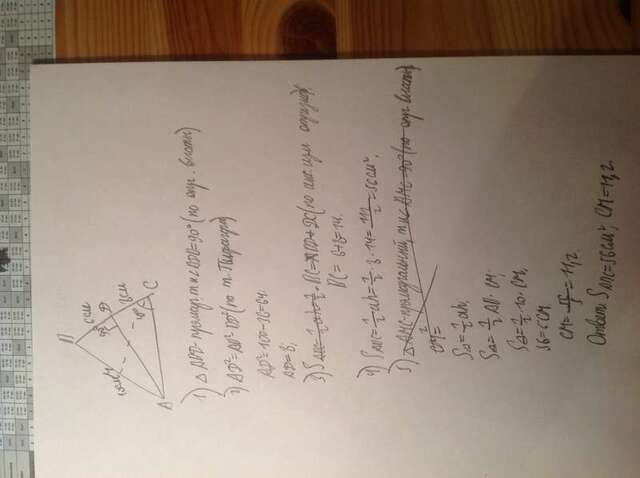 В
6 см
10 см
М
90°
D
8 см
90°
А
С
1) △ ADB - прямоуг. т.к ∠ADB = 90° (по опр. высоты)
2) AD² = AB² - BD² (по т. Пифагора)
AD² = 100 - 36 = 64.
AD = 8;
3) BC = BD + DC (по акс. изм. отрезков)
BC = 6 + 8 = 14.
4) S ABC = 1/2 ah = 1/2 · 8 · 14 = 112/2 = 56 см²;
5) △ АМС - прямоугольный, т.к ∠ АМС = 90° (по опр высоты)
CM² =
S△ = 1/2 ah;
S△ = 1/2 AB · CM;
S△ = 1/2 · 10 · CM;
56 = 5CM
CM = 56/5 = 11,2.
Ответ: S ABC = 56 см²; CM = 11,2.